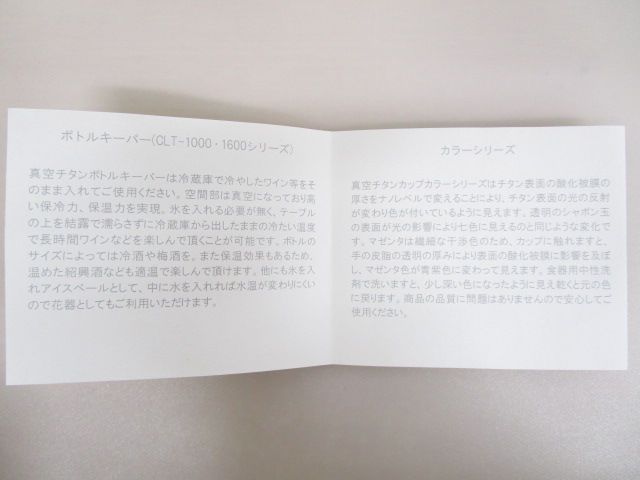 ボトルキーパー(CLT-1000・1600シリーズ)
真空チタンボトルキーパーは冷蔵庫で冷やしたワイン等をそ
のまま入れてご使用ください。空間部は真空になっており高
い保冷力、保温力を実現。氷を入れる必要が無く、テーブル
の上を結露で濡らさずに冷蔵庫から出したままの冷たい温度
で長時間ワインなどを楽しんで頂くことが可能です。ボトルの
サイズによっては冷酒や梅酒を。また保温効果もあるため、
温めた紹興酒なども適温で楽しんで頂けます。他にも氷を入
れアイスペールとして、中に水を入れれば水温が変わりにくい
ので花器としてもご利用いただけます。
カラーシリーズ
真空チタンカップカラーシリーズはチタン表面の酸化被膜の
厚さをナノレベルで変えることにより、チタン表面の光の反射
が変わり色が付いているように見えます。透明のシャボン玉
の表面が光の影響により七色に見えるのと同じような変化で
す。マゼンタは繊細な干渉色のため、カップに触れますと、
手の皮脂の透明の厚みにより表面の酸化被膜に影響を及ぼ
し、マゼンタ色が青紫色に変わって見えます。食器用中性洗
剤で洗いますと、少し深い色になったように見え乾くと元の色
に戻ります。商品の品質に問題はありませんので安心してご
使用ください。